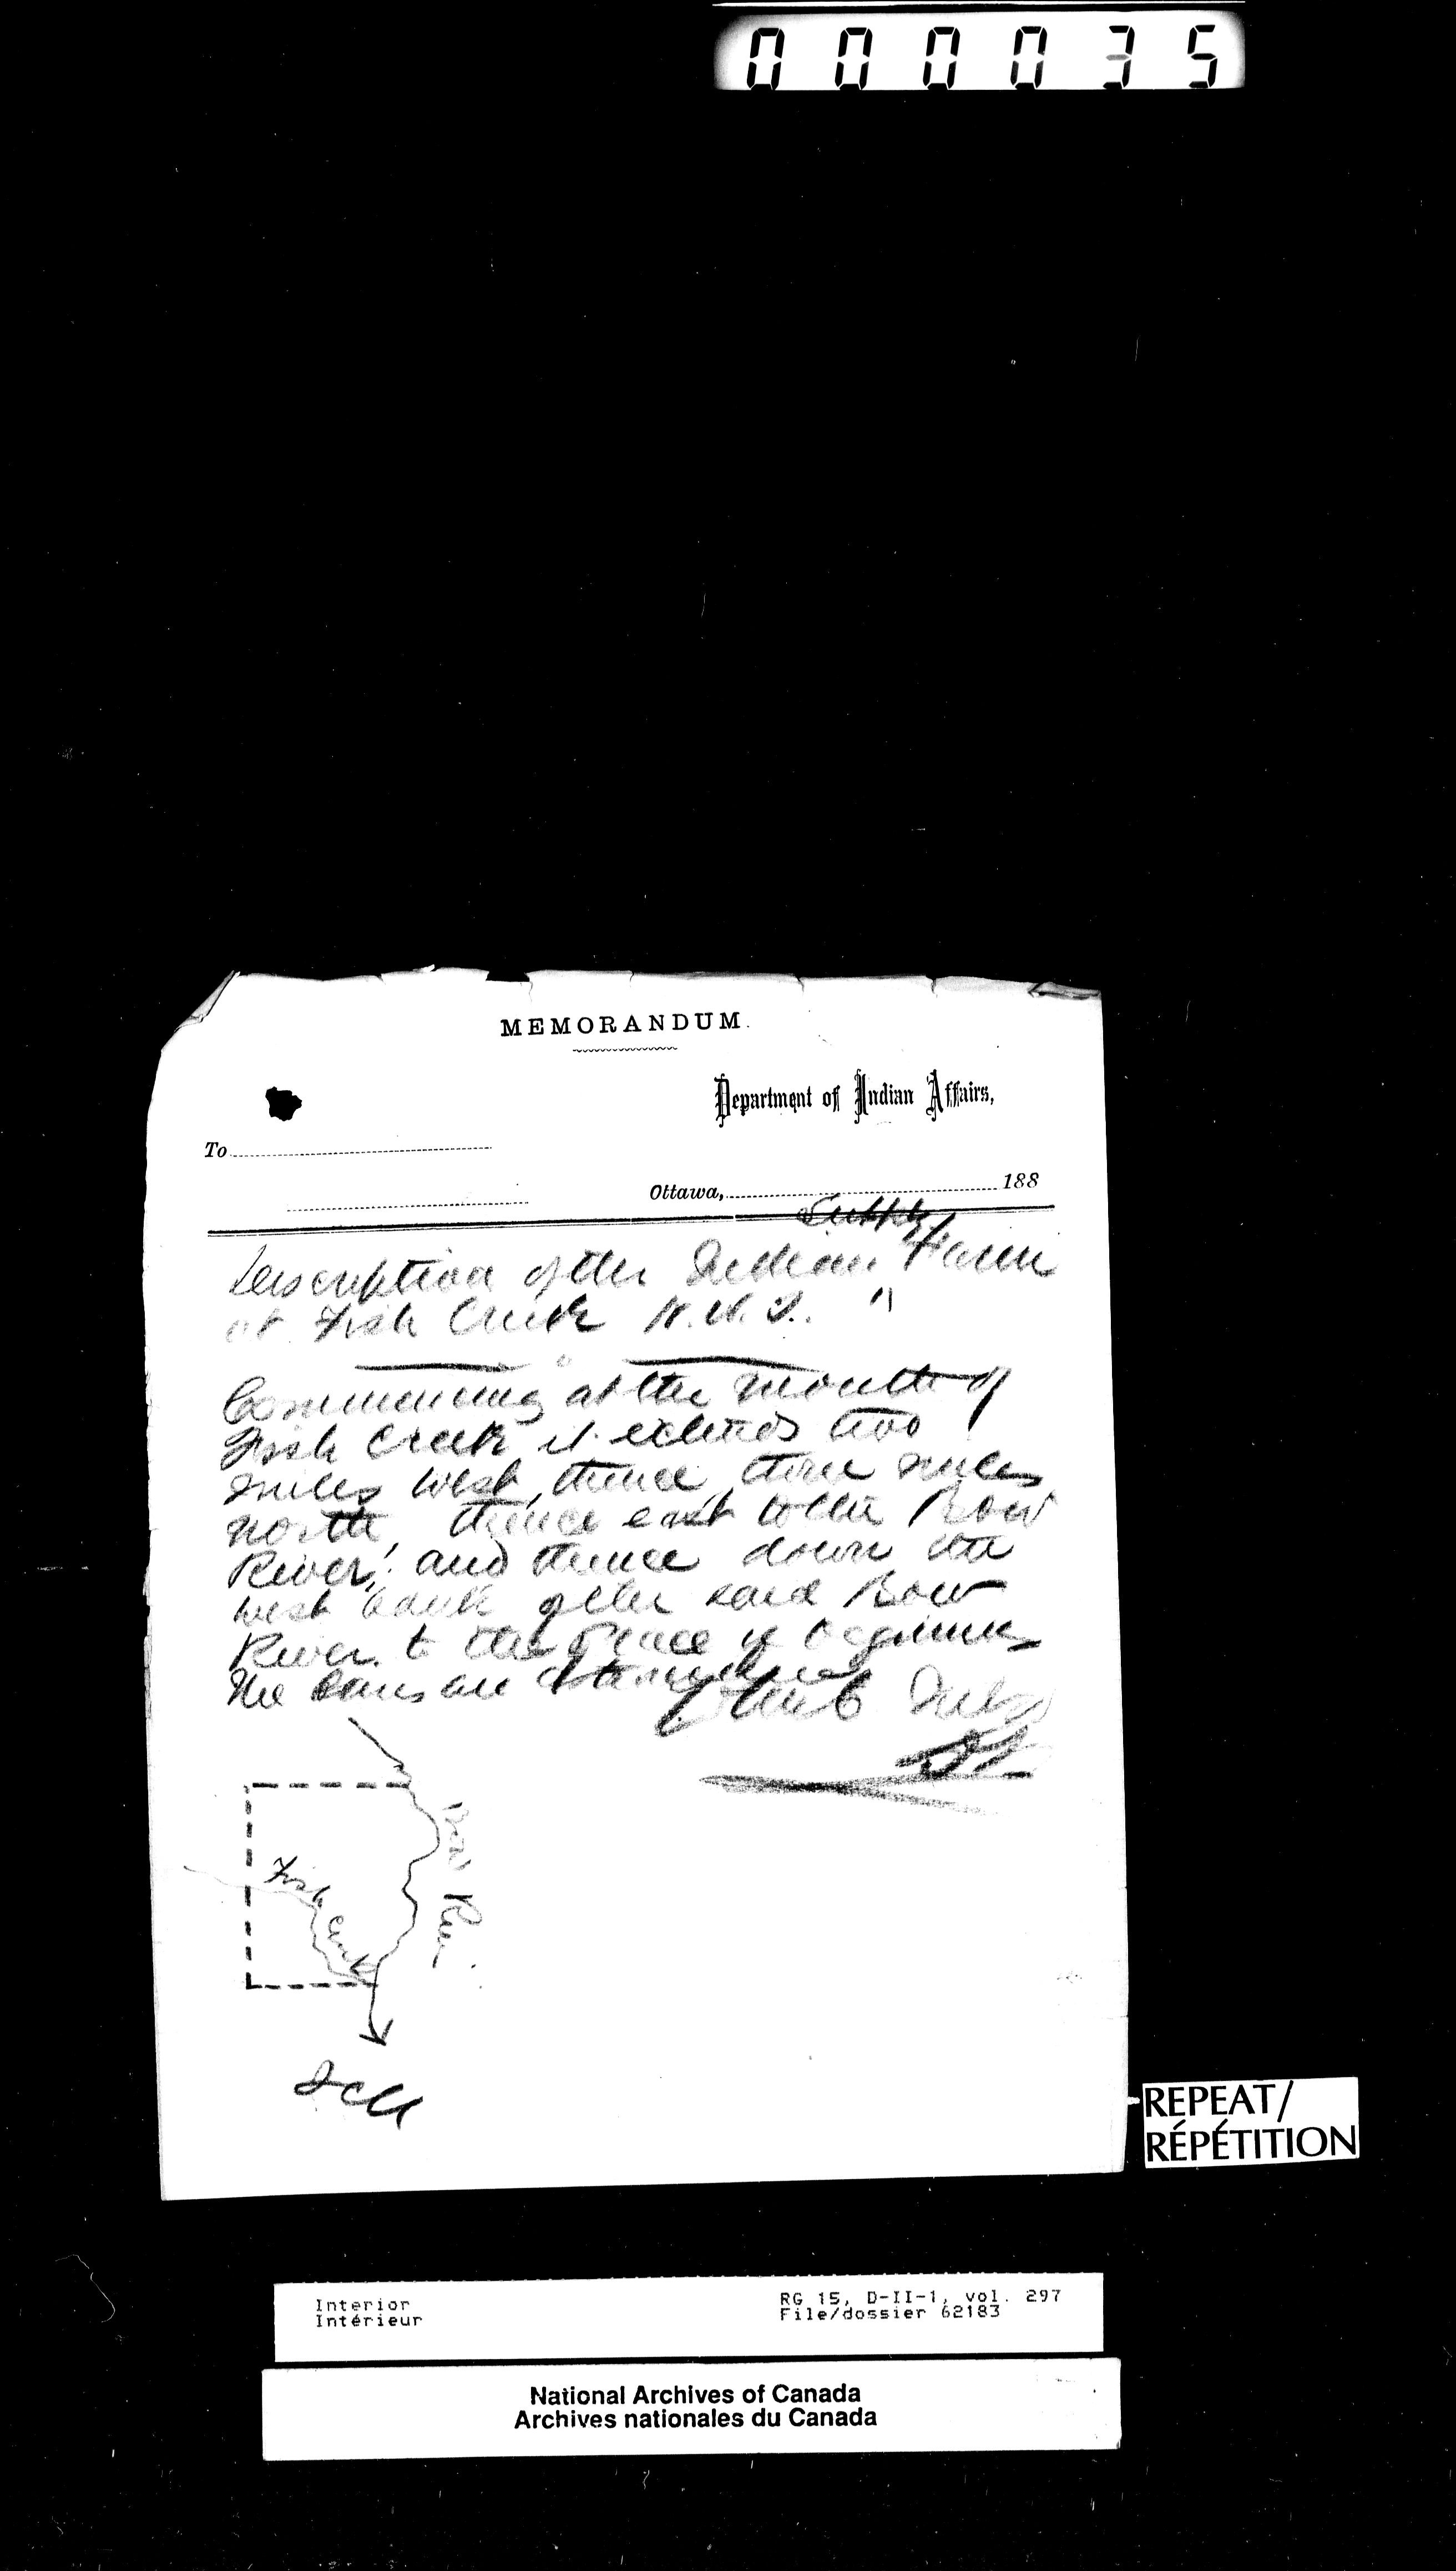 000035
MEMORANDUM.
Department of Indian Affairs,
To
Ottawa, 188
Supply
Description of the Indian Farm
at Fish Creek N.W.T.
Commencing at the mouth of
Fish Creek it extends two
miles West, thence three miles
north, thence east to the Bow
River, and thence down the
west bank of the said Bow
River to the place of beginning
The lines are
Bow River
Fish Creek
REPEAT/
RÉPÉTITION
Interior
Intérieur
RG 15, D-II-1, vol. 297
File/dossier 62183
National Archives of Canada
Archives nationales du Canada